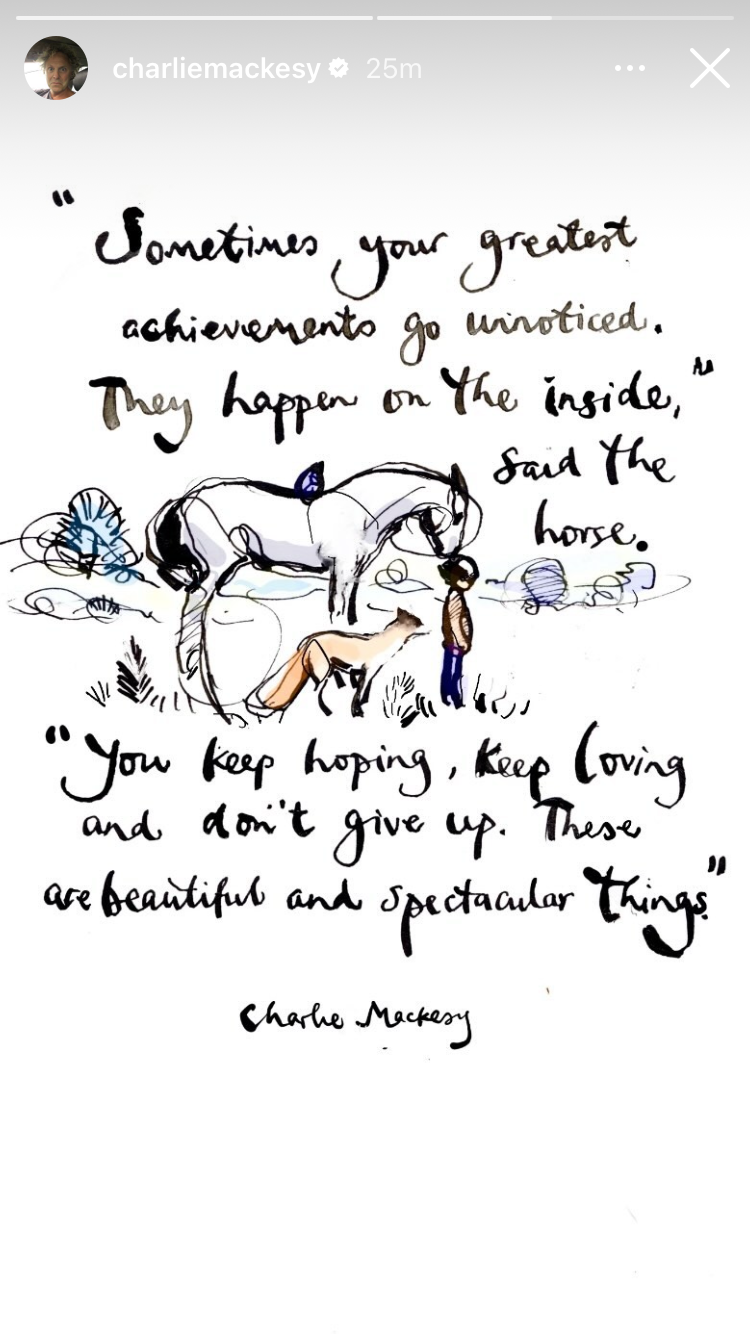 charliemackesy 25m
"Sometimes your greatest
achievements go unnoticed.
They happen on the inside,"
said the
horse.
"You keep hoping, keep loving
and don't give up. These
are beautiful and spectacular things."
Charlie Mackesy